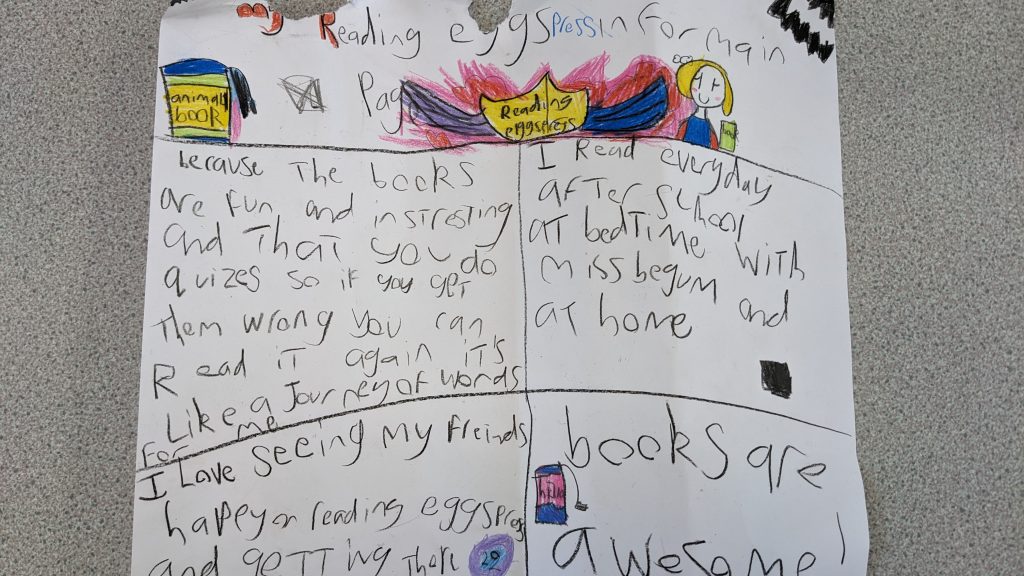 my Reading eggspress infor main
Page
animal
book
Reading
eggspress
because The books
are fun and instresting
and That you do
quizes so if you get
Them wrong you can
Read iT again iT's
Like a Journey of words
For me
I Read everyday
afTer School
aT bedTime with
miss begum and
aT home
I Love seeing my freinds
happey on reading eggspress
and geTTing There
29
books are
awesome!